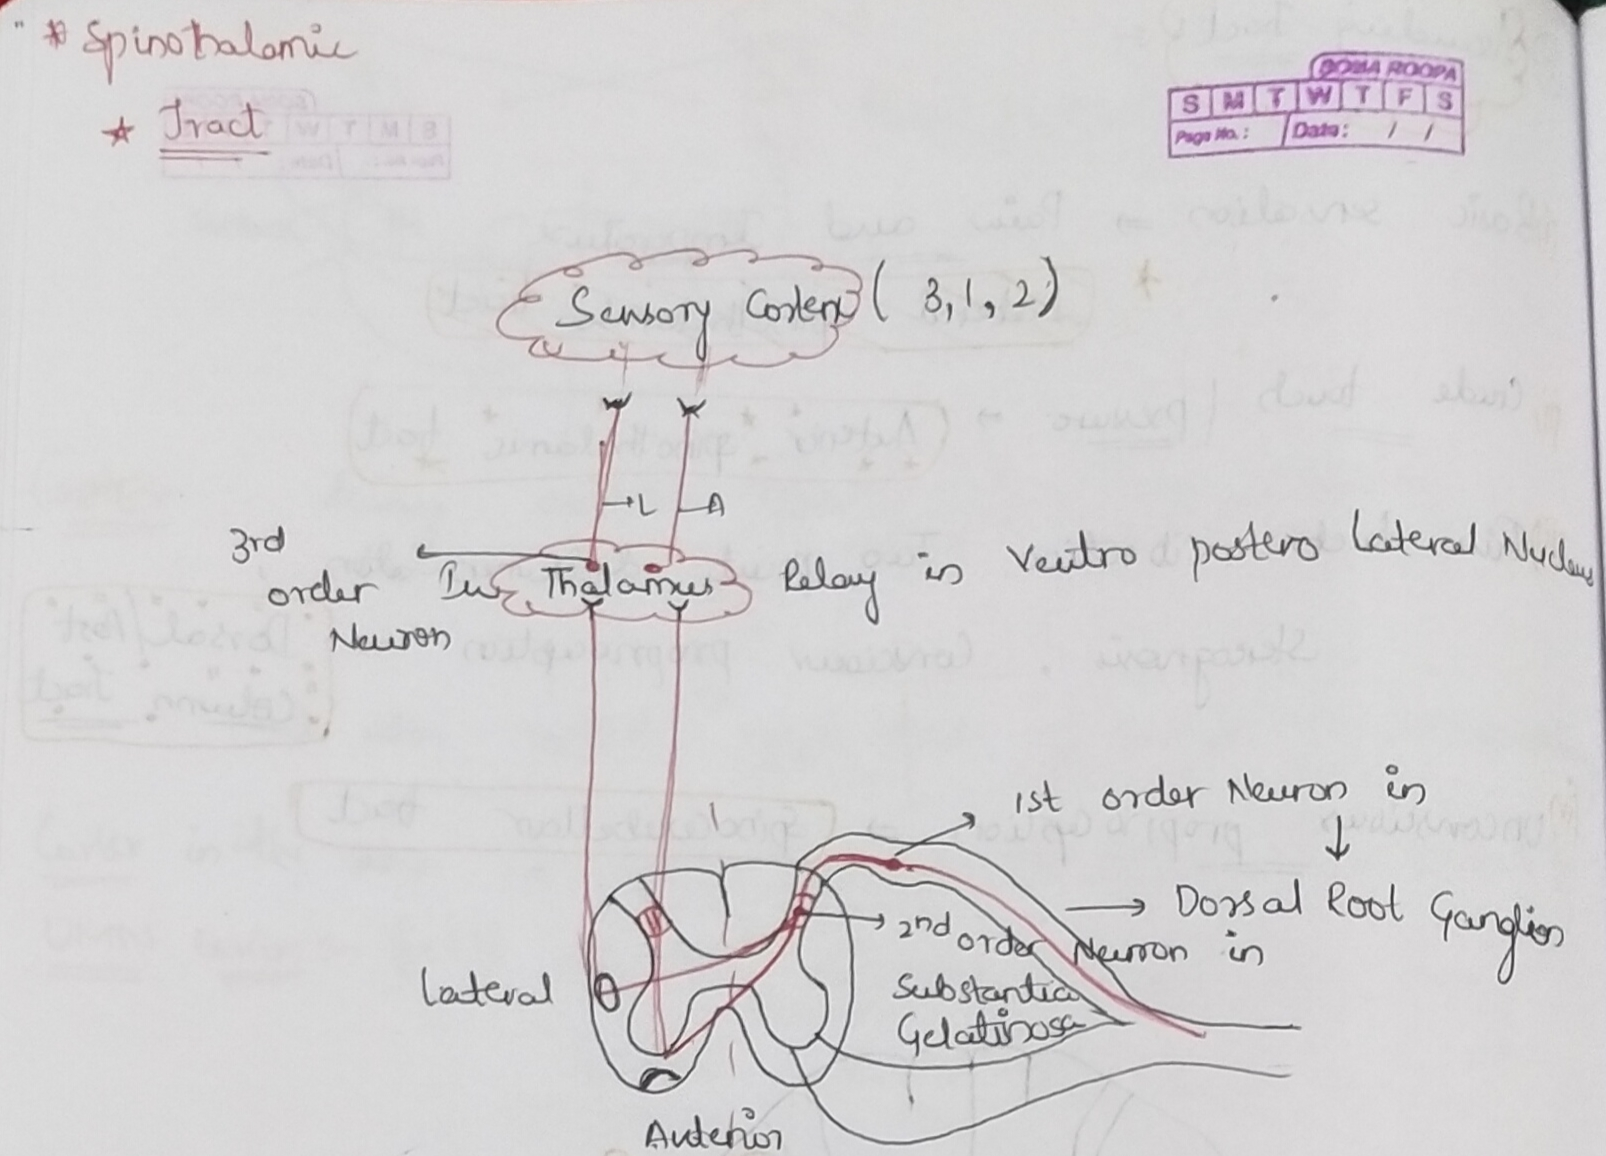 * Spinothalamic
* Tract
ROOPA
S M T W T F S
Page No.: Date: / /
Sensory Cortex (3,1,2)
L A
3rd order Neuron In Thalamus Relay in Ventro postero Lateral Nucleus
1st order Neuron in
→ Dorsal Root Ganglion
2nd order Neuron in
Substantia
Gelatinosa
Lateral
Anterior